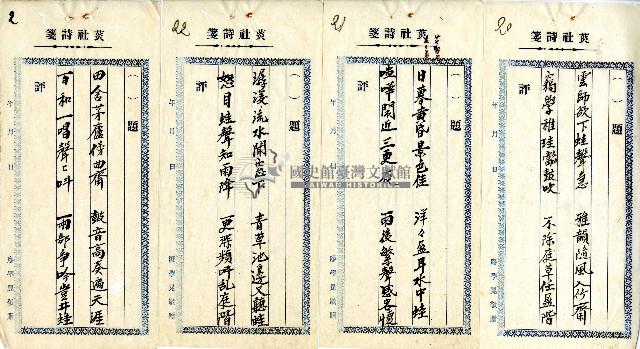 20
菼社詩箋
( ) 題
雲師欲下蛙聲急 雅韻隨風入竹齋
竊學雅珪鼓吹 不除庭草任盈階
評
年 月 日
21
菼社詩箋
( ) 題
日暮黃昏景色佳 洋々盈耳水中蛙
喧嘩鬧近三更夜 雨後繁聲感
評
年 月 日
22
菼社詩箋
( ) 題
潺湲流水閙 青草池邊又聽蛙
怒目蛙聲知雨降 更深頻叫乱庭階
評
年 月 日
2
菼社詩箋
( ) 題
田舍茅廬傍曲齋 鼓音高奏遍天涯
百和一唱聲々叫 兩部爭吟豈井蛙
評
年 月 日
國史館臺灣文獻館
TAIWAN HISTORICA